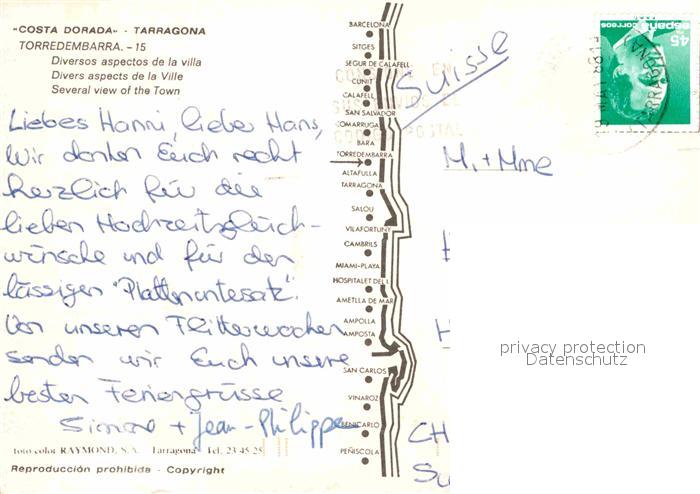 «COSTA DORADA» - TARRAGONA
TORREDEMBARRA. - 15
Diversos aspectos de la villa
Divers aspects de la Ville
Several view of the Town
Liebes Hanni, lieber Hans,
Wir danken Euch recht
herzlich für die
lieben Hochzeitsglück-
wünsche und für den
lässigen "Plattenuntesatz".
Von unseren Flitterwochen
senden wir Euch unsere
besten Feriengrüsse
Simone + Jean-Philippe
foto color RAYMOND, S.A. Tarragona Tel. 23 45 25
Reproducción prohibida - Copyright
BARCELONA
SITGES
SEGUR DE CALAFELL
CUNIT
CALAFELL
SAN SALVADOR
COMARRUGA
BARA
TORREDEMBARRA
ALTAFULLA
TARRAGONA
SALOU
VILAFORTUNY
CAMBRILS
MIAMI-PLAYA
HOSPITALET DEL I.
AMETLLA DE MAR
AMPOLLA
AMPOSTA
SAN CARLOS
VINAROZ
BENICARLO
PEÑISCOLA
Suisse
45
españa correos
TARRAGONA
M. + Mme
H
CH
Su
privacy protection
Datenschutz